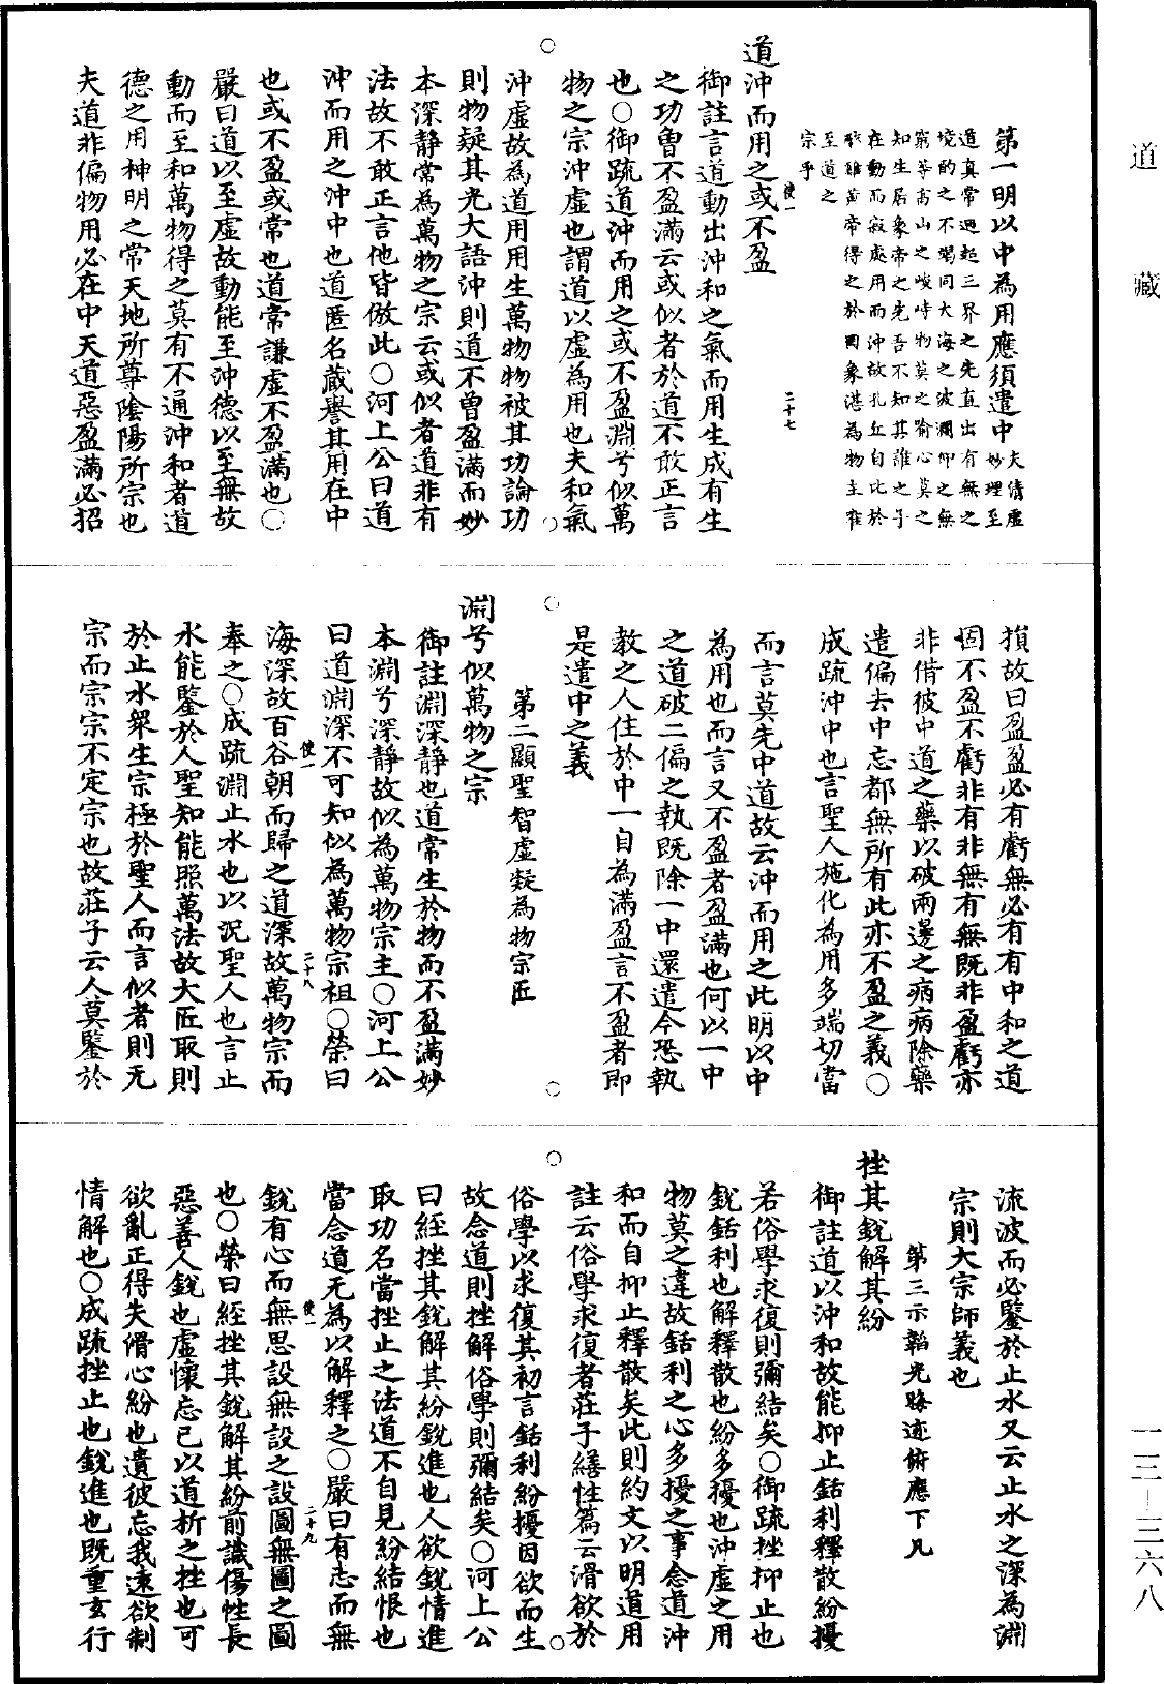 道藏
第一明以中為用應須遣中夫清虛
妙理至
道真常迥超三界之先直出有無之
境酌之不竭同大海之波瀾仰之無
窮等高山之峻峙物莫之踰心莫之
知生居象帝之先吾不知其誰之子
在動而寂處用而沖故孔丘自比於
醯雞黃帝得之於罔象湛為物主寔
至道之
宗乎
道沖而用之或不盈
使一
二十七
御註言道動出沖和之氣而用生成有生
之功曾不盈滿云或似者於道不敢正言
也○御疏道沖而用之或不盈淵兮似萬
物之宗沖虛也謂道以虛為用也夫和氣
沖虛故為道用用生萬物物被其功論功
則物疑其光大語沖則道不曾盈滿而妙
本深靜常為萬物之宗云或似者道非有
法故不敢正言他皆倣此○河上公曰道
沖而用之沖中也道匿名藏譽其用在中
也或不盈或常也道常謙虛不盈滿也○
嚴曰道以至虛故動能至沖德以至無故
動而至和萬物得之莫有不通沖和者道
德之用神明之常天地所尊陰陽所宗也
夫道非偏物用必在中天道惡盈滿必招
損故曰盈盈必有虧無必有有中和之道
固不盈不虧非有非無有無既非盈虧亦
非借彼中道之藥以破兩邊之病病除藥
遣偏去中忘都無所有此亦不盈之義○
成疏沖中也言聖人施化為用多端切當
而言莫先中道故云沖而用之此明以中
為用也而言又不盈者盈滿也何以一中
之道破二偏之執既除一中還遣今恐執
教之人住於中一自為滿盈言不盈者即
是遣中之義
第二顯聖智虛凝為物宗匠
淵兮似萬物之宗
御註淵深靜也道常生於物而不盈滿妙
本淵兮深靜故似為萬物宗主○河上公
曰道淵深不可知似為萬物宗祖○榮曰
使一
二十八
海深故百谷朝而歸之道深故萬物宗而
奉之○成疏淵止水也以況聖人也言止
水能鑒於人聖知能照萬法故大匠取則
於止水眾生宗極於聖人而言似者則无
宗而宗宗不定宗也故莊子云人莫鑒於
流波而必鑒於止水又云止水之深為淵
宗則大宗師義也
第三示韜光晦迹俯應下凡
挫其銳解其紛
御註道以沖和故能抑止銛利釋散紛擾
若俗學求復則彌結矣○御疏挫抑止也
銳銛利也解釋散也紛多擾也沖虛之用
物莫之違故銛利之心多擾之事念道沖
和而自抑止釋散矣此則約文以明道用
註云俗學求復者莊子繕性篇云滑欲於
俗學以求復其初言銛利紛擾因欲而生
故念道則挫解俗學則彌結矣○河上公
曰經挫其銳解其紛銳進也人欲銳情進
取功名當挫止之法道不自見紛結恨也
當念道无為以解釋之○嚴曰有志而無
使一
二十九
銳有心而無思設無設之設圖無圖之圖
也○榮曰經挫其銳解其紛前識傷性長
惡善人銳也虛懷忘己以道析之挫也可
欲亂正得失滑心紛也遺彼忘我遠欲制
情解也○成疏挫止也銳進也既重玄行
一三—三六八